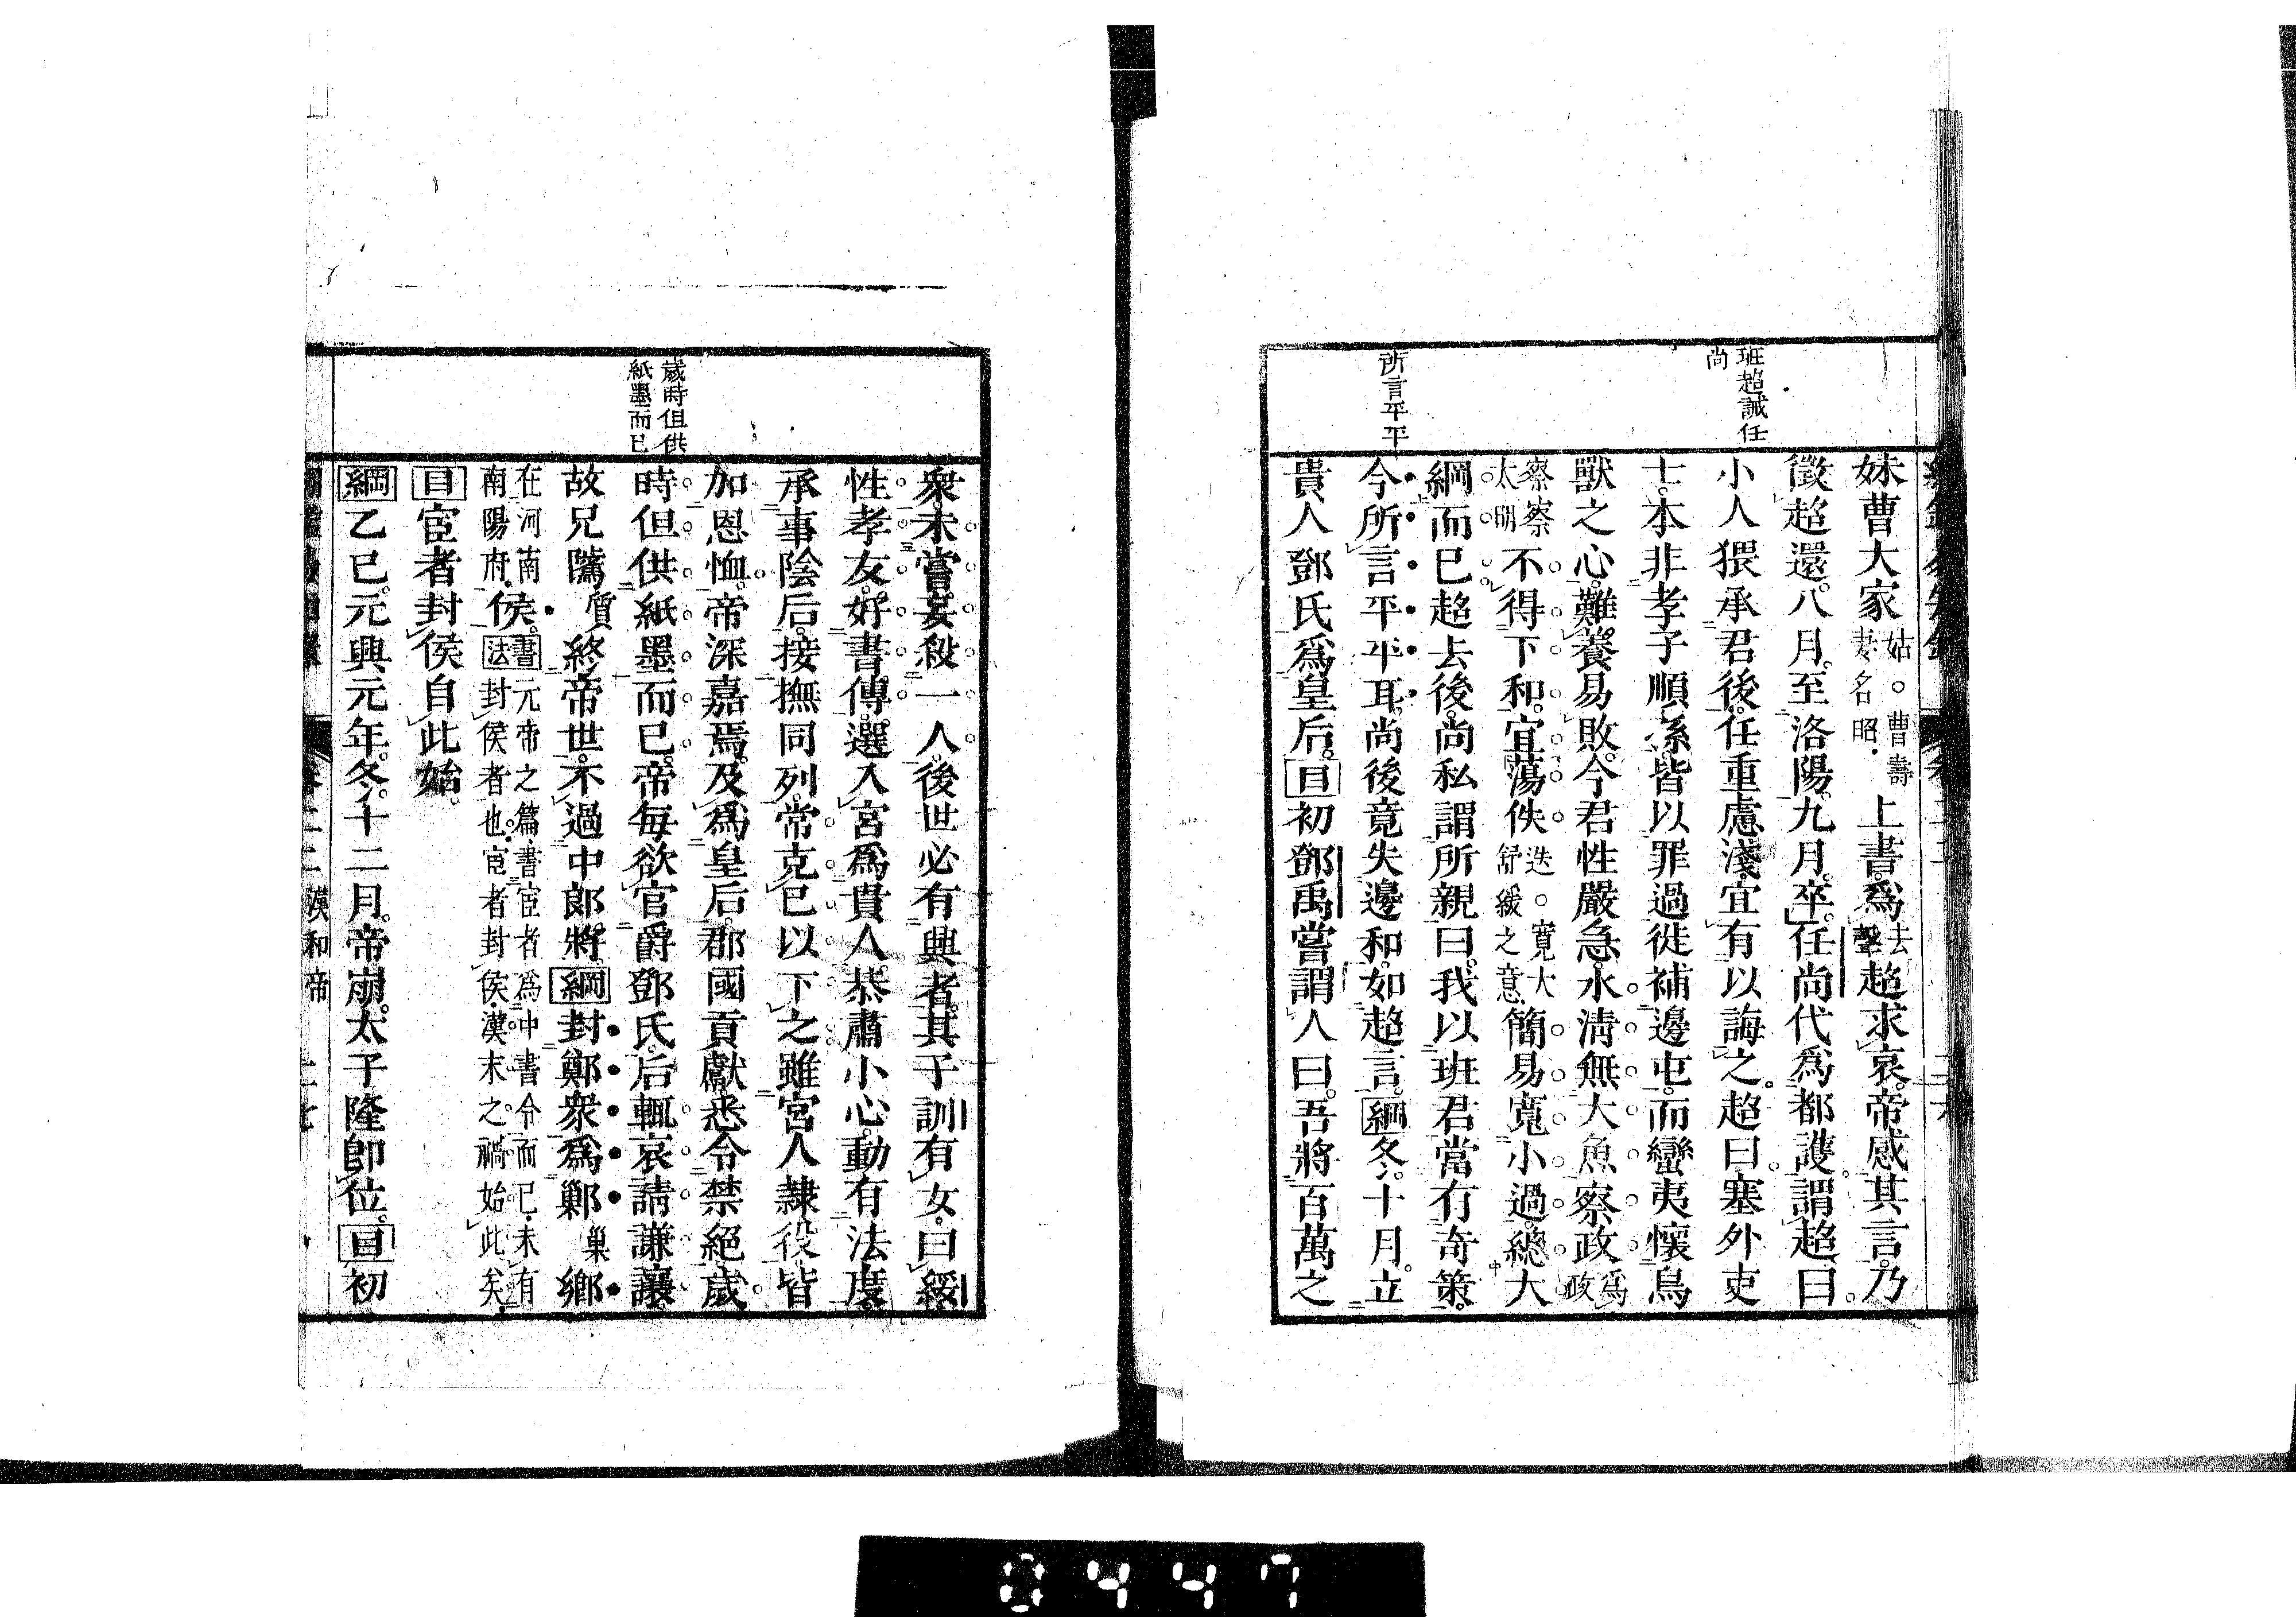 班超誡任
尚
所言平平
妹曹大家姑○曹壽妻名昭上書爲去聲超求哀帝感其言乃
徵超還八月至洛陽九月卒任尚代爲都護謂超曰
小人猥承君後任重慮淺宜有以誨之超曰塞外吏
士本非孝子順孫皆以罪過徙補邊屯而蠻夷懷鳥
獸之心難養易敗今君性嚴急水淸無大魚察政爲政
察察太明不得下和宜蕩佚迭○寬大舒緩之意簡易寬小過總大
綱而已超去後尚私謂所親曰我以班君當有奇策
今所言平平耳尚後竟失邊和如超言綱冬十月立
貴人鄧氏爲皇后目初鄧禹嘗謂人曰吾將百萬之
歲時但供
紙墨而已
衆未嘗妄殺一人後世必有興者其子訓有女曰綏
性孝友好書傳選入宮爲貴人恭肅小心動有法度
承事陰后接撫同列常克已以下之雖宮人隸役皆
加恩恤帝深嘉焉及爲皇后郡國貢獻悉令禁絕歲
時但供紙墨而已帝每欲官爵鄧氏后輒哀請謙讓
故兄騭質終帝世不過中郎將綱封鄭衆爲鄛巢鄉
在河南南陽府侯書法元帝之篇書宦者爲中書令而已未有封侯者也宦者封侯漢末之禍始此矣
目宦者封侯自此始
綱乙巳元興元年冬十二月帝崩太子隆卽位目初
漢和帝